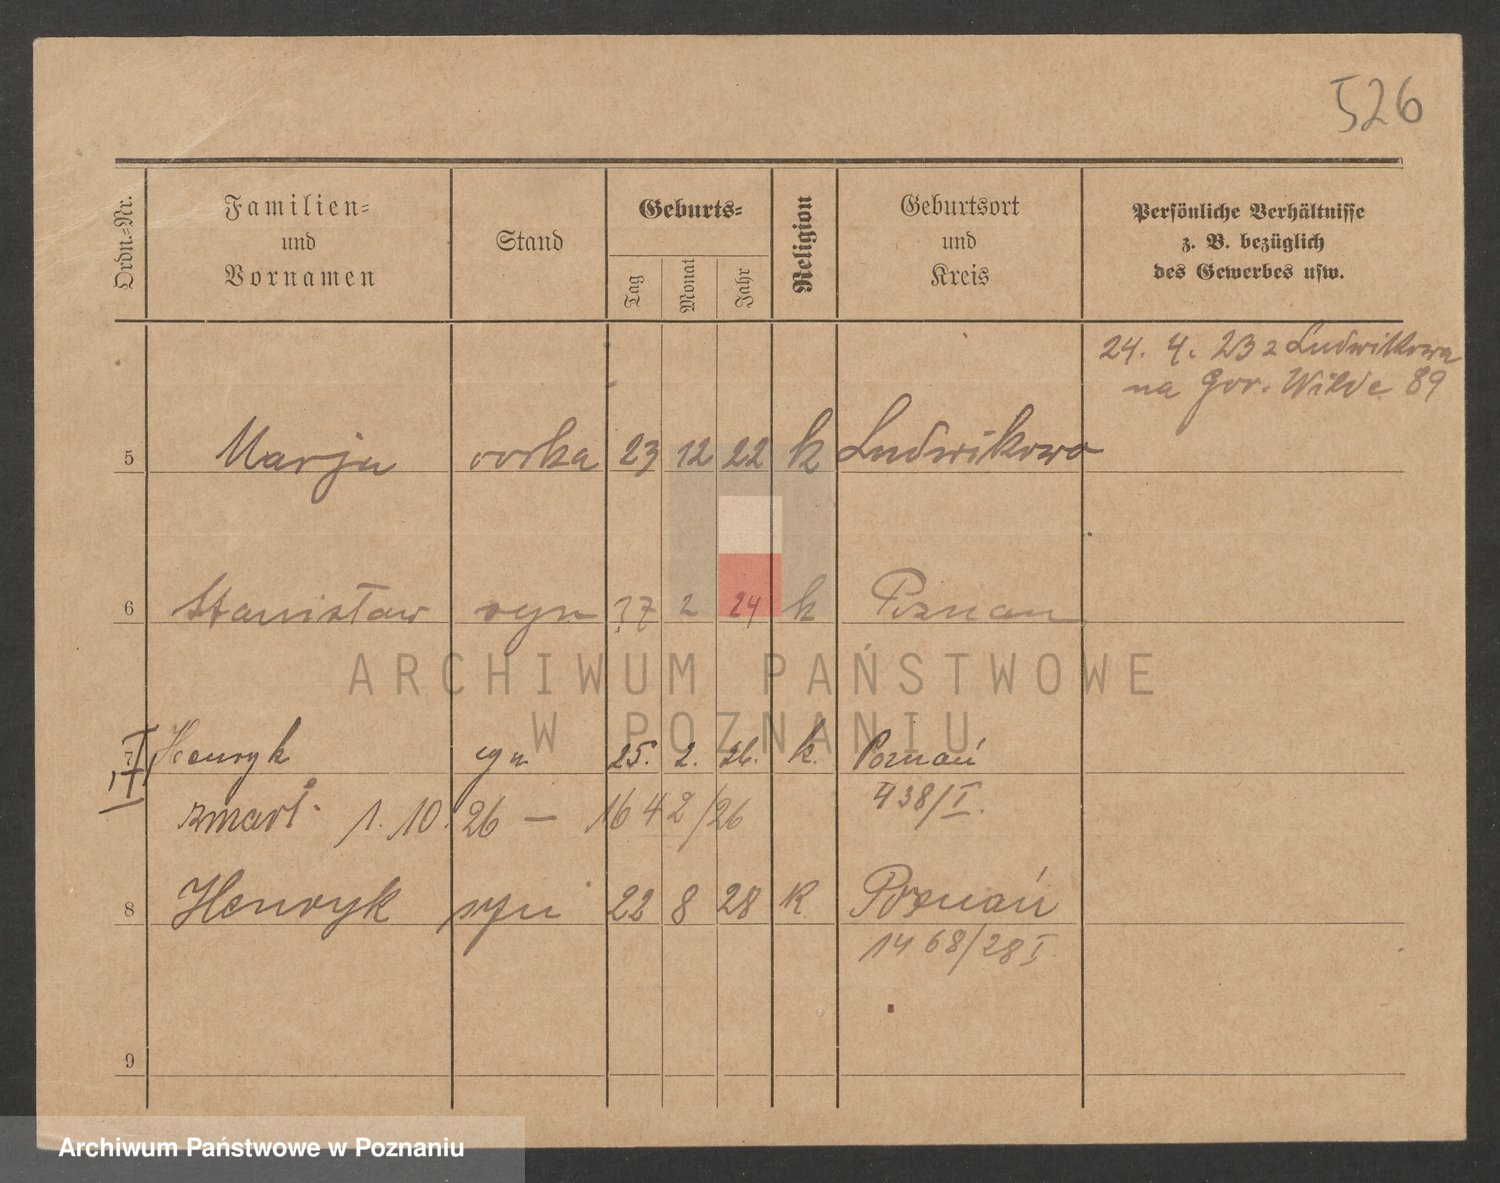 526
Ordn.-Nr.
Familien-
und
Vornamen
Stand
Geburts-
Tag
Monat
Jahr
Religion
Geburtsort
und
Kreis
Persönliche Verhältnisse
z. B. bezüglich
des Gewerbes usw.
24. 4. 23 z Ludwikowa
na Gór. Wilde 89
5 Marja corka 23 12 22 k Ludwikowo
6 Stanisław syn 2 24 k Poznan
7 Henryk syn 25. 2. 26. k. Poznań
438/I.
zmarł 1. 10. 26 — 1642/26
8 Henryk syn 22 8 28 K Poznań
1468/28 I
9
ARCHIWUM PAŃSTWOWE
W POZNANIU
Archiwum Państwowe w Poznaniu